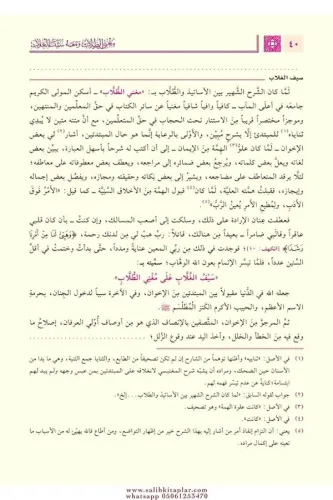 مغني الطلاب ومعه سيف الغلاب
٤٠
سيف الغلاب
لَمَّا كان الشَّرح الشَّهير بين الأساتيذ والطُّلَّاب بـ: «مغني الطُّلَّاب» ـ أسكن المولى الكريم
جامعه في أعلى المآب ـ كافياً وافياً شافياً مغنياً عن سائر الكتاب في حقِّ المعلِّمين والمنتهين،
وموجزاً مختصراً قريباً من الاستتار تحت الحجاب في حقِّ المتعلِّمين، مع أنَّ متنه متين لا يُبدي
للمبتدئ إلَّا بشرحٍ مُبِين، والأَوْلى بالرعاية إنَّما هو حال المبتدئين، أشار لي بعض
الإخوان ـ لَمَّا كان علوُّ الهمَّة مِنَ الإيمان ـ إلى أن أكتب له شرحاً بأسهل العبارة، يبيِّن بعض
لغاته ويعلُّ بعض كلماته، ويُرجِعُ بعض ضمائره إلى مراجعه، ويعطف بعض معطوفاته على معاطفه؛
لئلَّا يرقد المتعاطف على مضاجعه، ويشيرُ إلى بعض نكاته وحقيقته ومجازه، ويفصِّل بعض إجماله
وإيجازه، فقبلتُ همَّته العليَّة، لَمَّا كان قبول الهمَّة مِنَ الأخلاق السَّنِيَّة ـ كما قيل: «الأمرُ فَوقَ
الأدَبِ، ولِمُطيعِ الأمرِ يَعينُ الرَّبُّ»
فعطفت عِنان الإرادة على ذلك، وسلكت إلى أصعب المسالك، وإن كنتُ ـ بأن كان قلبي
عاقراً وقالبي ضامراً ـ بعيداً مِن هنالك، قائلاً: ربِّ هبْ لي من لدنك رحمة، ﴿وَهَيِّئْ لَنَا مِنْ أَمْرِنَا
رَشَدًا﴾ [الكهف: ١٠] فوجدت في ذلك مِن ربِّي المعين عنايةً ومدداً، حتَّى بدأتُ وختمتُ في أقلِّ
السِّنين عدداً، فلمَّا تيسَّر الإتمام بعون الله الوهَّاب؛ سمَّيته بـ:
«سَيْفُ الغُلَّابِ عَلَى مُغْنِي الطُّلَّابِ»
جعله الله في الدُّنيا مقبولاً بين المبتدئين مِنَ الإخوان، وفي الآخرة سبباً لدخول الجِنان، بحرمة
الاسم الأعظم، والحبيب الأكرم الكنز المُطَلْسَم ﷺ.
ثمَّ المرجوُّ مِنَ الإخوان، المتَّصفين بالإنصاف الذي هو من أوصاف أُولي العرفان، إصلاحُ ما
وقع فيه مِنَ الخطأ والخلل، وأخذ اليد عند وقوع الزَّلل؛
(٢) جواب قوله السابق: «لما كان الشرح الشهير بين الأساتيذ والطلاب...إلخ».
(٣) في الأصل: «كانت علوة الهمة» وهو تصحيف.
(٤) في الأصل: «كانت».
www.salihkitaplar.com
whatsapp 05061255470